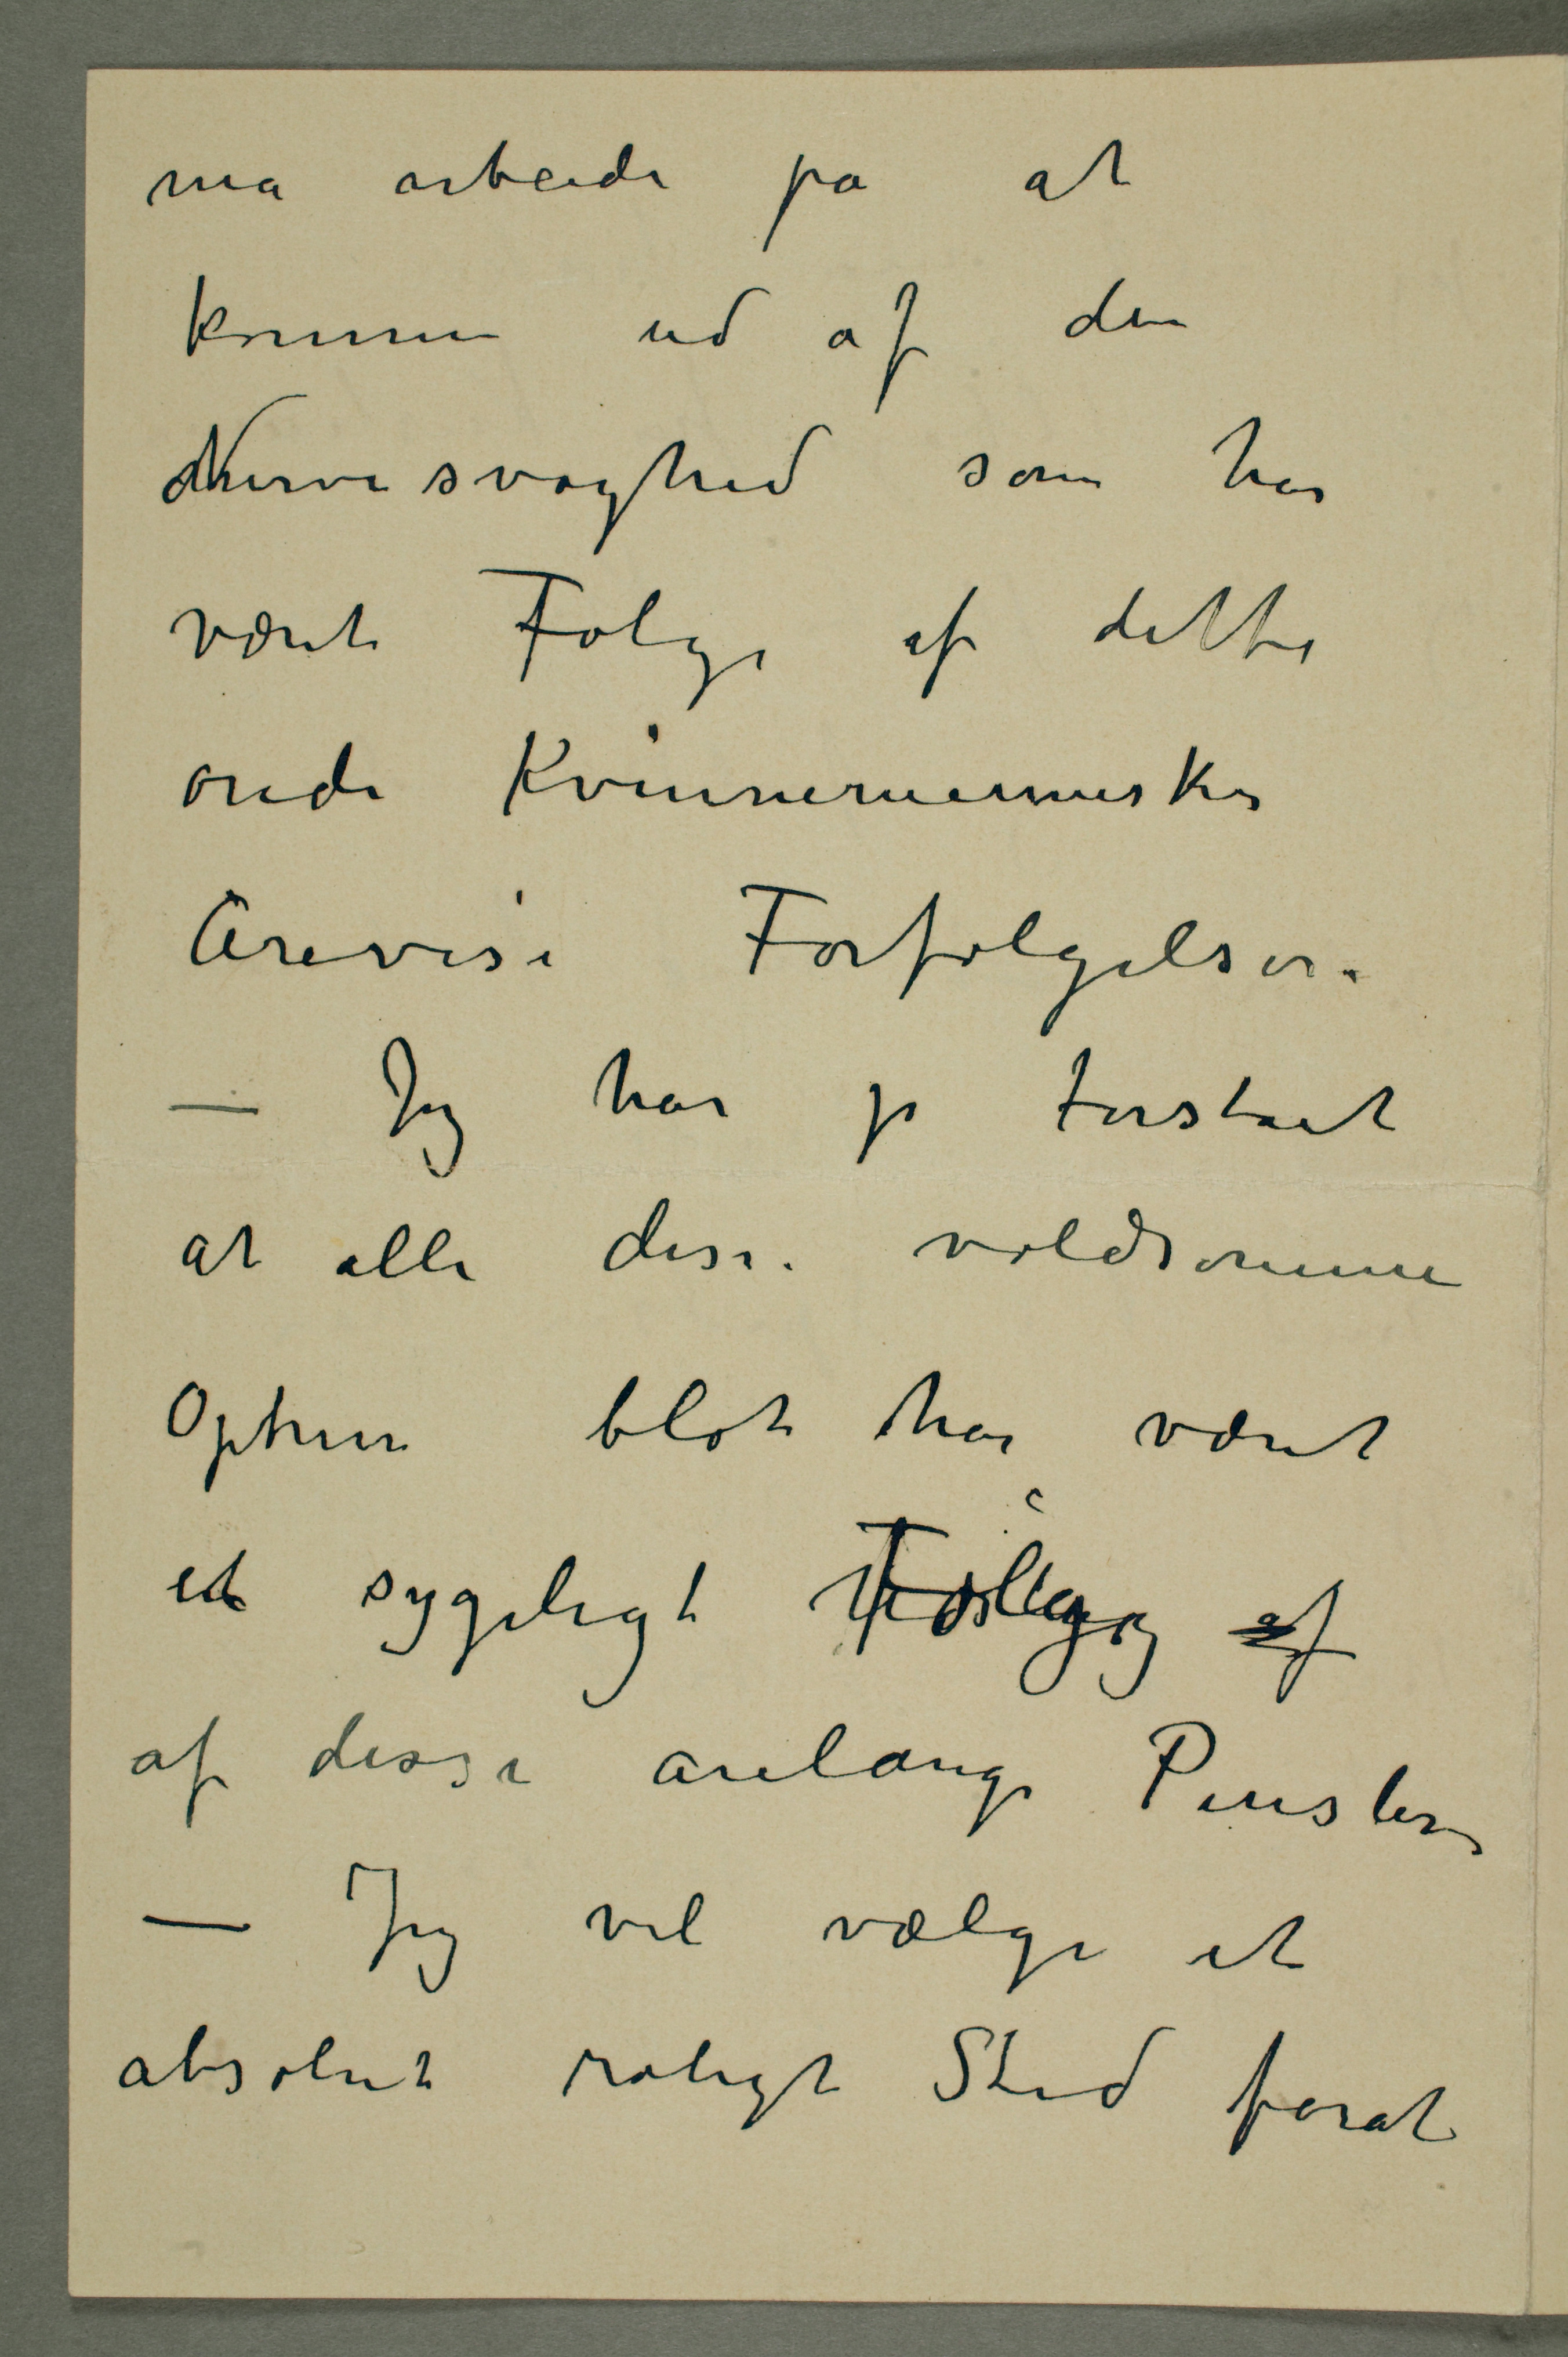 må arbeide på at
komme ud af den
Nervesvaghed som har
været Følge af dette
onde Kvinnemenneskes
Årevise Forfølgelser.
— Jeg har jo forstået
at alle disse voldsomme
Optrin blot har været
et sygeligt Følge af
af disse årelange Pinsler
— Jeg vil vælge et
absolut roligt Sted forat